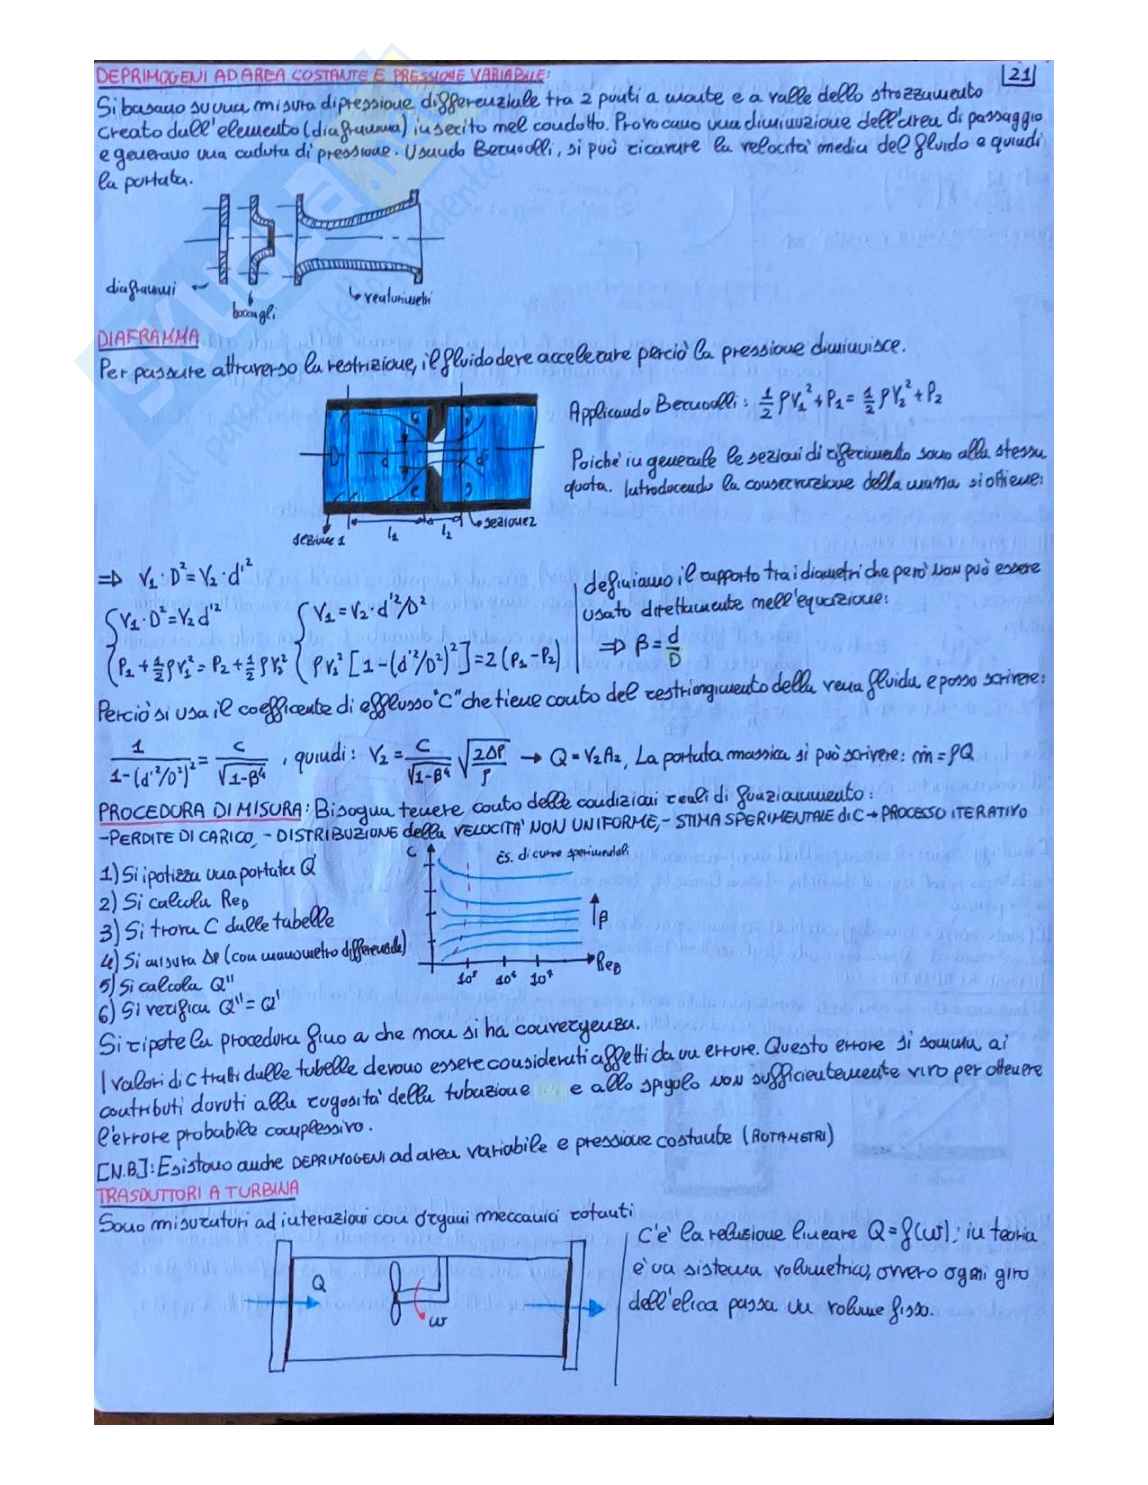 DEPRIMOGENI AD AREA COSTANTE E PRESSIONE VARIABILE:
21
Si basano su una misura di pressione differenziale tra 2 punti a monte e a valle dello strozzamento
creato dall'elemento (diaframma) inserito nel condotto. Provocano una diminuzione dell'area di passaggio
e generano una caduta di pressione. Usando Bernoulli, si può ricavare la velocità media del fluido e quindi
la portata.
diaframmi
boccagli
venturimetri
DIAFRAMMA
Per passare attraverso la restrizione, il fluido deve accelerare perciò la pressione diminuisce.
Applicando Bernoulli: 1/2 ρV₁² + P₁ = 1/2 ρV₂² + P₂
Poiché in generale le sezioni di riferimento sono alla stessa
quota. Introducendo la conservazione della massa si ottiene:
D d d'
sezione 1 l₁ l₂ sezione 2
⇒ V₁·D² = V₂·d'²
{V₁·D² = V₂d'² {V₁ = V₂·d'²/D²
{P₁ + 1/2 ρV₁² = P₂ + 1/2 ρV₂² {ρV₂² [1-(d'²/D²)²] = 2(P₁-P₂)
definiamo il rapporto tra i diametri che però non può essere
usato direttamente nell'equazione:
⇒ β = d/D
Perciò si usa il coefficente di efflusso "C" che tiene conto del restringimento della vena fluida e posso scrivere:
1/(1-(d'²/D²)²) = C/√(1-β⁴), quindi: V₂ = C/√(1-β⁴) √(2ΔP/ρ) → Q = V₂A₂, La portata massica si può scrivere: ṁ = ρQ
PROCEDURA DI MISURA: Bisogna tenere conto delle condizioni reali di funzionamento:
-PERDITE DI CARICO, - DISTRIBUZIONE della VELOCITA' NON UNIFORME, - STIMA SPERIMENTALE di C → PROCESSO ITERATIVO
C
Es. di curve sperimentali
β
10⁵ 10⁶ 10⁷ Re_D
1) Si ipotizza una portata Q'
2) Si calcola Re_D
3) Si trova C dalle tabelle
4) Si misura ΔP (con manometro differenziale)
5) Si calcola Q''
6) Si verifica Q'' = Q'
Si ripete la procedura fino a che non si ha convergenza.
I valori di C tratti dalle tabelle devono essere considerati affetti da un errore. Questo errore si somma ai
contributi dovuti alla rugosità della tubazione e allo spigolo non sufficientemente vivo per ottenere
l'errore probabile complessivo.
[N.B]: Esistono anche DEPRIMOGENI ad area variabile e pressione costante (ROTAMETRI)
TRASDUTTORI A TURBINA
Sono misuratori ad interazioni con organi meccanici rotanti
Q
ω
C'è la relazione lineare Q = f(ω); in teoria
è un sistema volumetrico, ovvero ogni giro
dell'elica passa un volume fisso.